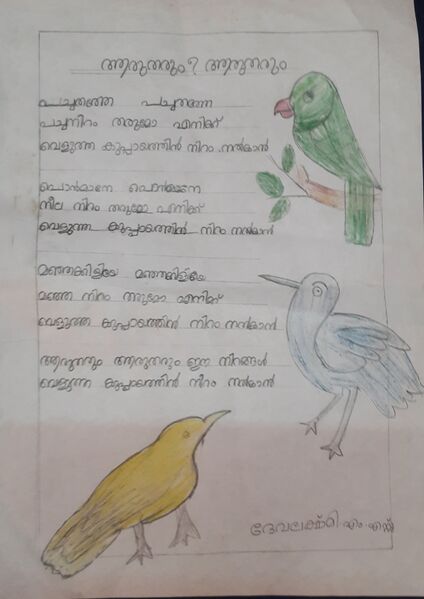 ആരുതരും? ആരുതരും
പച്ചതത്തേ പച്ചതത്തേ
പച്ചനിറം തരുമോ എനിക്ക്
വെളുത്ത കുപ്പായത്തിൻ നിറം നൽകാൻ
പൊൻമാനേ പൊൻമാനേ
നീല നിറം തരുമോ എനിക്ക്
വെളുത്ത കുപ്പായത്തിൻ നിറം നൽകാൻ
മഞ്ഞക്കിളിയേ മഞ്ഞക്കിളിയേ
മഞ്ഞ നിറം തരുമോ എനിക്ക്
വെളുത്ത കുപ്പായത്തിൻ നിറം നൽകാൻ
ആരുതരും ആരുതരും ഈ നിറങ്ങൾ
വെളുത്ത കുപ്പായത്തിൻ നിറം നൽകാൻ
ദേവലക്ഷ്മി എം എസ്